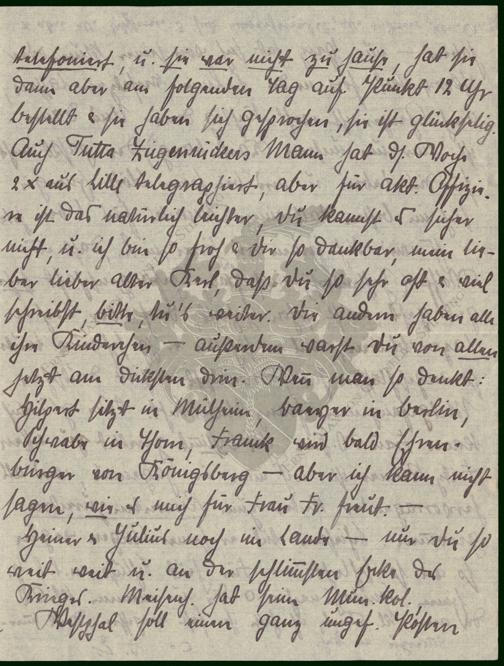 telefoniert, u. sie war nicht zu hause, hat sie
dann aber am folgenden Tag auf Punkt 12 Uhr
bestellt & sie haben sich gesprochen, sie ist glückselig.
Auch Tutta Mann hat d. Woche
2 x aus Lille telegraphiert, aber für akt. Offizie-
re ist das natürlich leichter, du kannst es sicher
nicht, u. ich bin so froh & dir so dankbar, mein lie-
ber lieber alter Kerl, daß du so sehr oft & viel
schreibst, bitte, tu's weiter. Die andern haben alle
ihre Kinderchen — außerdem warst du von allen
jetzt am dicksten drin. Wenn man so denkt:
Hilpert sitzt in Mülheim, in Berlin,
Schwabe in Thorn, Franck wird bald Ehren-
bürger von Königsberg — aber ich kann nicht
sagen, wie es mich für Frau Fr. freut. —
Heiner & Julius noch im Lande — nur du so
weit weit u. an der schlimmsten Ecke des
Krieges. hat seine Mun. Kol.
Westphal soll einen ganz ungef. Posten